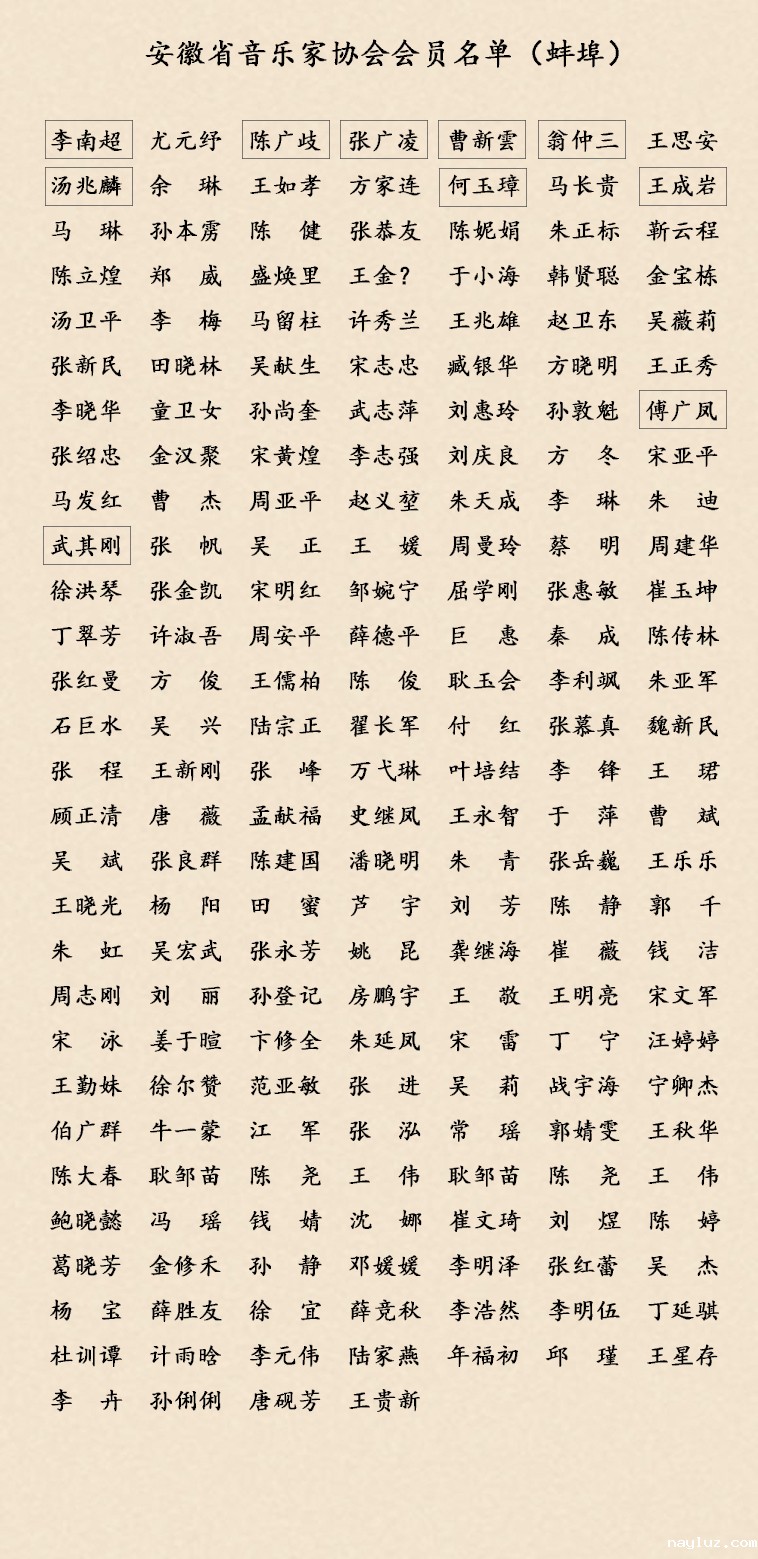 安徽省音乐家协会会员名单（蚌埠）
李南超 尤元纾 陈广歧 张广凌 曹新雲 翁仲三 王思安
汤兆麟 余 琳 王如孝 方家连 何玉璋 马长贵 王成岩
马 琳 孙本雳 陈 健 张恭友 陈妮娟 朱正标 靳云程
陈立煌 郑 威 盛焕里 王金？ 于小海 韩贤聪 金宝栋
汤卫平 李 梅 马留柱 许秀兰 王兆雄 赵卫东 吴薇莉
张新民 田晓林 吴献生 宋志忠 臧银华 方晓明 王正秀
李晓华 童卫女 孙尚奎 武志萍 刘惠玲 孙敦魁 傅广凤
张绍忠 金汉聚 宋黄煌 李志强 刘庆良 方 冬 宋亚平
马发红 曹 杰 周亚平 赵义堃 朱天成 李 琳 朱 迪
武其刚 张 帆 吴 正 王 媛 周曼玲 蔡 明 周建华
徐洪琴 张金凯 宋明红 邹婉宁 屈学刚 张惠敏 崔玉坤
丁翠芳 许淑吾 周安平 薛德平 巨 惠 秦 成 陈传林
张红曼 方 俊 王儒柏 陈 俊 耿玉会 李利飒 朱亚军
石巨水 吴 兴 陆宗正 翟长军 付 红 张慕真 魏新民
张 程 王新刚 张 峰 万弋琳 叶培结 李 锋 王 珺
顾正清 唐 薇 孟献福 史继凤 王永智 于 萍 曹 斌
吴 斌 张良群 陈建国 潘晓明 朱 青 张岳巍 王乐乐
王晓光 杨 阳 田 蜜 芦 宇 刘 芳 陈 静 郭 千
朱 虹 吴宏武 张永芳 姚 昆 龚继海 崔 薇 钱 洁
周志刚 刘 丽 孙登记 房鹏宇 王 敬 王明亮 宋文军
宋 泳 姜于暄 卞修全 朱延凤 宋 雷 丁 宁 汪婷婷
王勤妹 徐尔赞 范亚敏 张 进 吴 莉 战宇海 宁卿杰
伯广群 牛一蒙 江 军 张 泓 常 瑶 郭婧雯 王秋华
陈大春 耿邹苗 陈 尧 王 伟 耿邹苗 陈 尧 王 伟
鲍晓懿 冯 瑶 钱 婧 沈 娜 崔文琦 刘 煜 陈 婷
葛晓芳 金修禾 孙 静 邓媛媛 李明泽 张红蕾 吴 杰
杨 宝 薛胜友 徐 宜 薛竞秋 李浩然 李明伍 丁延骐
杜训谭 计雨晗 李元伟 陆家燕 年福初 邱 瑾 王星存
李 卉 孙俐俐 唐砚芳 王贵新
nayluz.com